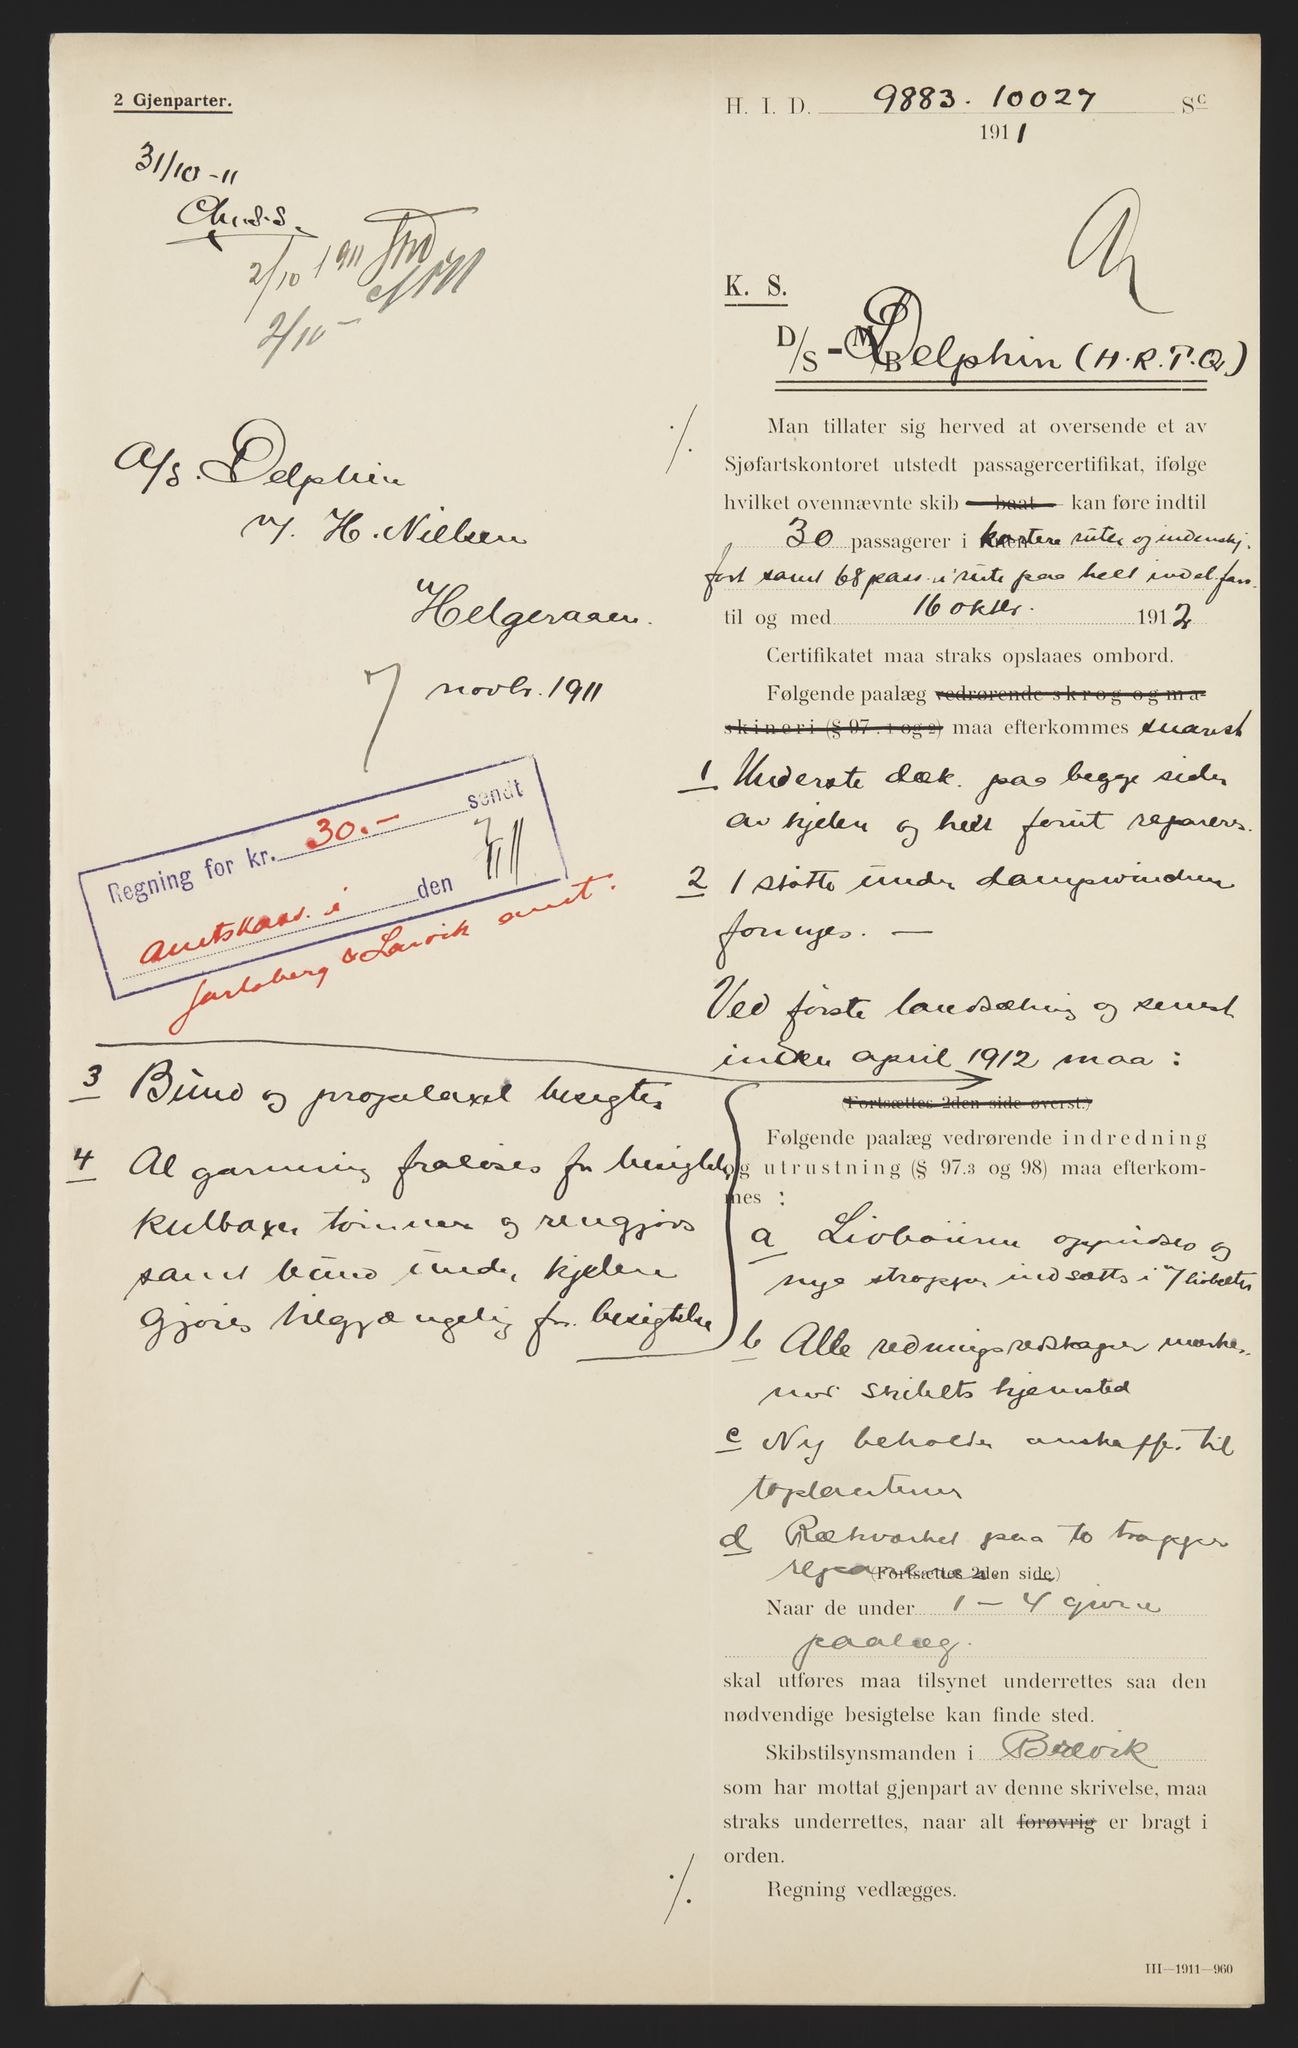 2 Gjenparter.
31/10-11
Chr. S.S.
2/10 1911
2/10-
A/S. Delphin
v/. H. Nielsen
Helgeraaen.
7 novbr. 1911
Regning for kr. 30.- sendt
amtskass. i den 7/11
Jarlsberg & Larvik amt.
3 Bund og propelaxel besigtes
4 Al garnering fraløses for besigtelse
kulboxer tømmes og rengjøres
samt bund under kjelen
gjøres tilgjængelig for besigtelse
H. I. D. 9883. 10027 Sc
1911
K. S.
D/S - M/B Delphin (H.R.T.Q.)
Man tillater sig herved at oversende et av
Sjøfartskontoret utstedt passagercertifikat, ifølge
hvilket ovennævnte skib baat kan føre indtil
30 passagerer i kortere ruter og indenskj.
fart samt 68 pass. i rute paa helt indel. farv.
til og med 16 oktbr. 1912
Certifikatet maa straks opslaaes ombord.
Følgende paalæg vedrørende skrog og ma-
skineri (§ 97. 1 og 2) maa efterkommes snarest
1 Underste dæk paa begge sider
av kjelen og helt forut repareres.
2 1 støtte under dampvinden
fornyes. —
Ved første landsætning og senest
inden april 1912 maa:
(Fortsættes 2den side øverst.)
Følgende paalæg vedrørende indredning
og utrustning (§ 97.3 og 98) maa efterkom-
mes :
a Livbøiene oppudses og
nye stropper indsættes i 7 livbelter
b Alle redningsredskaper merkes
med skibets hjemsted
c Ny beholder anskaffes til
toplanternen
d Rækverket paa to trapper
repareres
(Fortsættes 2den side)
Naar de under 1 – 4 givne
paalæg.
skal utføres maa tilsynet underrettes saa den
nødvendige besigtelse kan finde sted.
Skibstilsynsmanden i Brevik
som har mottat gjenpart av denne skrivelse, maa
straks underrettes, naar alt forøvrig er bragt i
orden.
Regning vedlægges.
III—1911—960